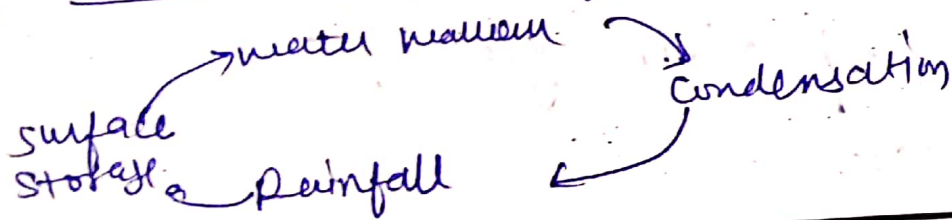 water
Condensation
surface
storage
Rainfall